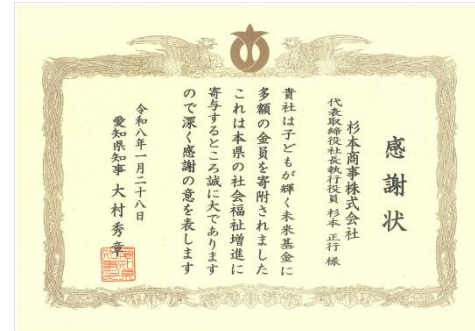 感謝状
杉本商事株式会社
代表取締役社長執行役員 杉本 正行 様
貴社は子どもが輝く未来基金に
多額の金員を寄附されました
これは本県の社会福祉増進に
寄与するところ誠に大であります
ので深く感謝の意を表します
令和八年一月二十八日
愛知県知事 大村秀章